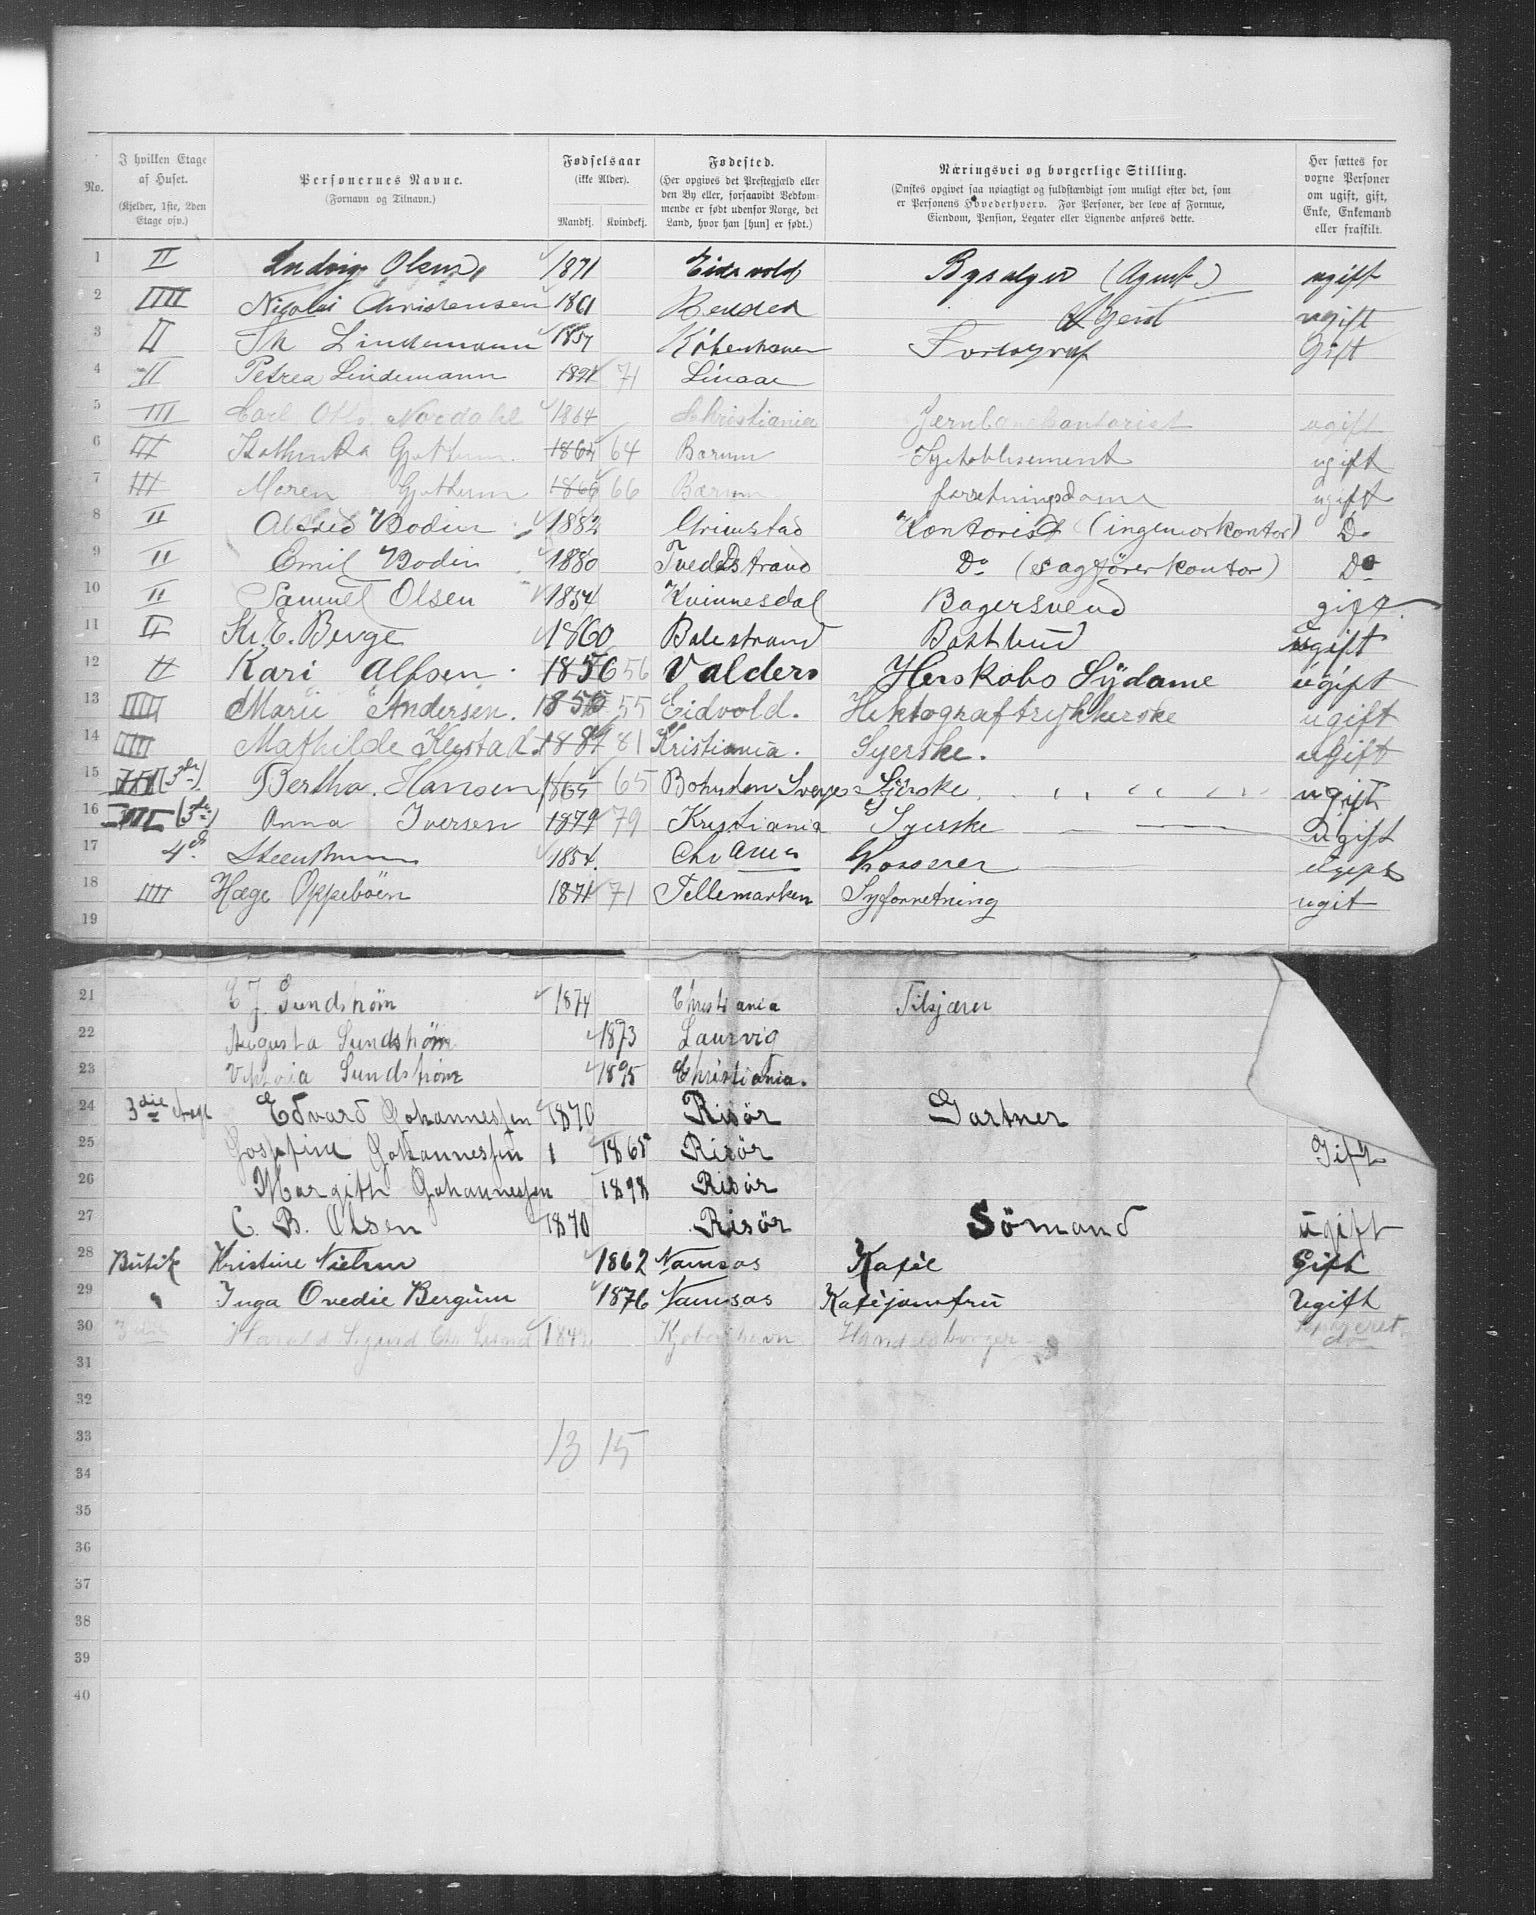 No.
I hvilken Etage af Huset. (Kjelder, 1ste, 2den Etage osv.)
Personernes Navne. (Fornavn og Tilnavn.)
Fødselsaar (ikke Alder). Mandkj. Kvindekj.
Fødested. (Her opgives det Prestegjæld eller den By eller, forsaavidt Vedkommende er født udenfor Norge, det Land, hvor han [hun] er født.)
Næringsvei og borgerlige Stilling. (Ønskes opgivet saa nøiagtigt og fuldstændigt som muligt efter det, som er Personens Hovederhverv. For Personer, der leve af Formue, Eiendom, Pension, Legater eller Lignende anføres dette.)
Her sættes for voxne Personer om ugift, gift, Enke, Enkemand eller fraskilt.
1 II Ludvig Olsen 1871 Eidsvold (Agent) ugift
2 IIII Nicolai Christensen 1861 Agent ugift
3 II Th Lindemann 1857 København Fortograf Gift
4 II Petrea Lindemann 71
5 III Carl Otto Nordahl 1864 Christiania Jernbanekontorist ugift
6 III Gjøthum 1864 64 Bærum Syetablisement ugift
7 III Maren Gjøthum 1866 66 Bærum forretningsdame ugift
8 II Alfred Bodin 1882 Grimstad Kontorist (ingeniørkontor) Do
9 II Emil Bodin 1880 Tvedestrand Do (sagførerkontor) Do
10 II Samuel Olsen 1854 Kvinnesdal Bagersvend gift
11 II Kr. E. Berge 1860 Balestrand Bostbud ugift
12 II Kari Alfsen 1856 56 Valders Herskabs Sÿdame ugift
13 IIII Marie Andersen. 1855 55 Eidvold. Hektograftrykkerske ugift
14 IIII Mathilde 1881 81 Kristiania. Syerske. ugift
15 III (3die) Bertha Hansen 1865 65 Bohuslen Sverge Sÿerske ugift
16 III (3die) Anna Iversen 1879 79 Kristiania Syerske ugift
17 4de Steenstrup 1854 Chr ania ugift
18 IIII Hæge Oppebøen 1871 71 Tellemarken Syforretning ugit
19
21 C J Sundstrøm 1874 Christiania Filsjærer
22 Augusta Sundstrøm 1873 Laurvig
23 Viktoria Sundstrøm 1895 Christiania.
24 3die Etage Edvard Johannessen 1870 Risör Gartner
25 Josefine Johannessen 1 1865 Risör Gift
26 Margith Johannessen 1898 Risör
27 C. B. Olsen 1870 Risör Sömand ugift
28 Butik Kristine Nielsen 1862 Namsos Kafée Gift
29 " Inga Ovedie Bergum 1876 Namsos Kaféjomfru Ugift
30 Harald Sigurd Chr. Kjøbenhavn Handelsborger
31
32
33 13 15
34
35
36
37
38
39
40